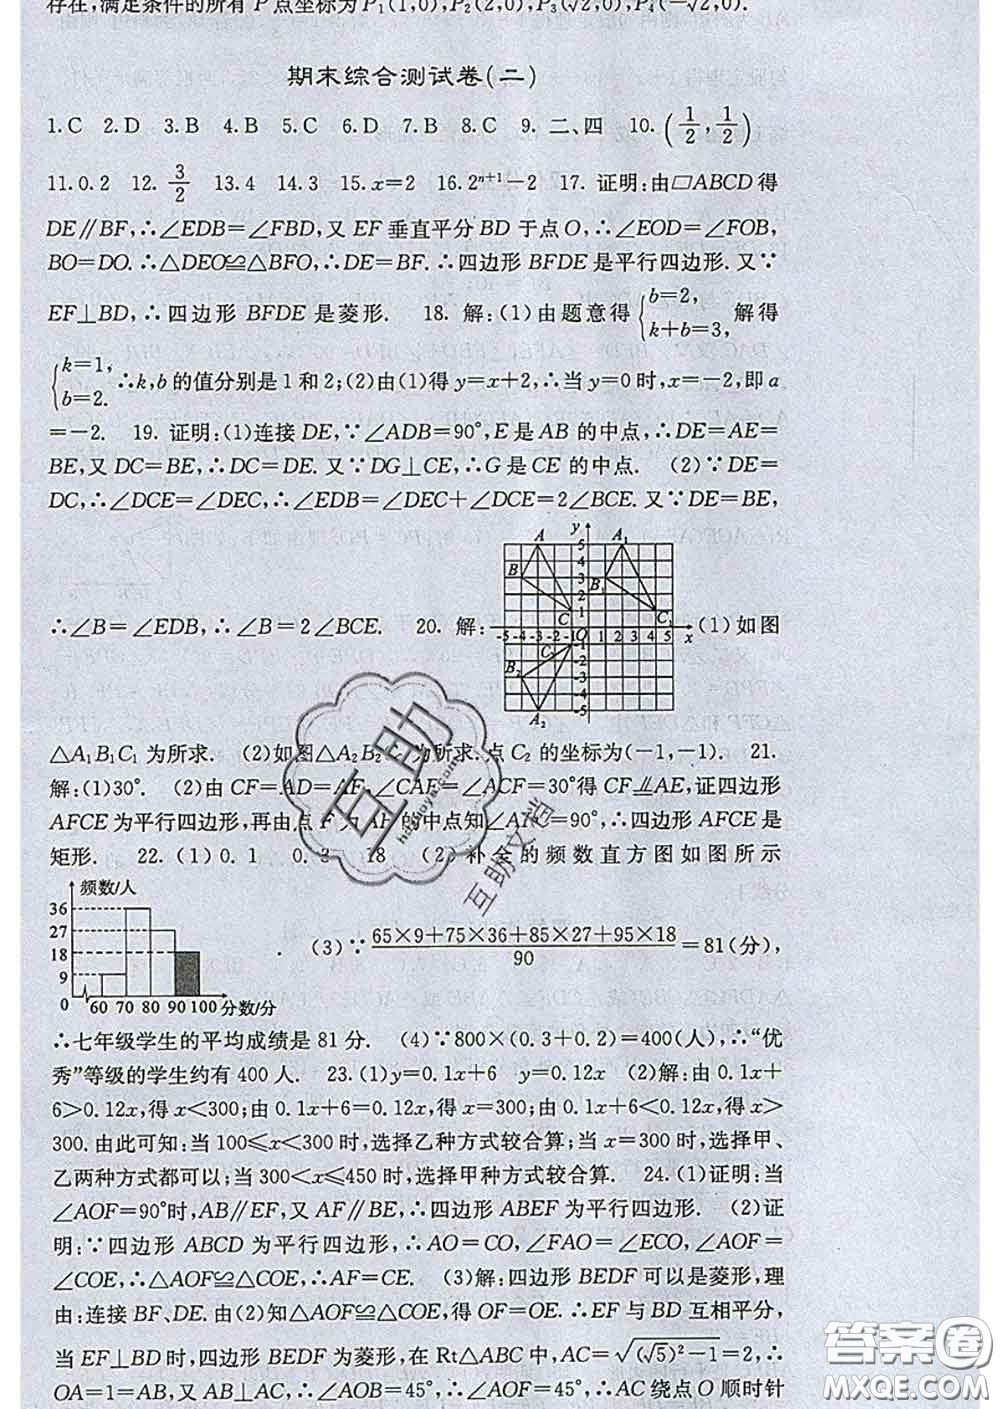 存在,满足条件的所有 P 点坐标为 P₁(1,0),P₂(2,0),P₃(√2,0),P₄(-√2,0).
期末综合测试卷(二)
1.C 2.D 3.B 4.B 5.C 6.D 7.B 8.C 9. 二、四 10. (1/2, 1/2)
11.0.2 12. 3/2 13.4 14.3 15.x=2 16.2ⁿ⁺¹-2 17. 证明:由□ABCD 得
DE∥BF,∴∠EDB=∠FBD,又 EF 垂直平分 BD 于点 O,∴∠EOD=∠FOB,
BO=DO.∴△DEO≌△BFO,∴DE=BF.∴四边形 BFDE 是平行四边形.又∵
EF⊥BD,∴四边形 BFDE 是菱形. 18. 解:(1)由题意得{b=2, k+b=3, 解得
{k=1, b=2. ∴k,b 的值分别是 1 和 2;(2)由(1)得 y=x+2,∴当 y=0 时,x=-2,即 a
=-2. 19. 证明:(1)连接 DE,∵∠ADB=90°,E 是 AB 的中点,∴DE=AE=
BE,又 DC=BE,∴DC=DE.又∵DG⊥CE,∴G 是 CE 的中点. (2)∵DE=
DC,∴∠DCE=∠DEC,∴∠EDB=∠DEC+∠DCE=2∠BCE.又∵DE=BE,
∴∠B=∠EDB,∴∠B=2∠BCE. 20. 解: (1)如图
y
A A₁
5
4
B B₁ 3
2
C 1 C₁
-5-4-3-2-1 O 1 2 3 4 5 x
C₂ -1
-2
B₂ -3
-4
A₂ -5
△A₁B₁C₁ 为所求. (2)如图△A₂B₂C₂ 为所求.点 C₂ 的坐标为(-1,-1). 21.
解:(1)30°. (2)由 CF=AD=AF,∠CAF=∠ACF=30°得 CF∥AE,证四边形
AFCE 为平行四边形,再由点 F 为 中点知∠ =90°,∴四边形 AFCE 是
矩形. 22. (1)0.1 0.3 18 (2)补全的频数直方图如图所示
频数/人
36
27
18
9
0 60 70 80 90 100 分数/分
. (3)∵(65×9+75×36+85×27+95×18)/90=81(分),
∴七年级学生的平均成绩是 81 分. (4)∵800×(0.3+0.2)=400(人),∴“优
秀”等级的学生约有 400 人. 23.(1)y=0.1x+6 y=0.12x (2)解:由 0.1x+
6>0.12x,得 x<300;由 0.1x+6=0.12x,得 x=300;由 0.1x+6<0.12x,得 x>
300.由此可知:当 100≤x<300 时,选择乙种方式较合算;当 x=300 时,选择甲、
乙两种方式都可以;当 300<x≤450 时,选择甲种方式较合算. 24.(1)证明:当
∠AOF=90°时,AB∥EF,又 AF∥BE,∴四边形 ABEF 为平行四边形. (2)证
明:∵四边形 ABCD 为平行四边形,∴AO=CO,∠FAO=∠ECO,∠AOF=
∠COE,∴△AOF≌△COE,∴AF=CE. (3)解:四边形 BEDF 可以是菱形,理
由:连接 BF、DE.由(2)知△AOF≌△COE,得 OF=OE.∴EF 与 BD 互相平分,
当 EF⊥BD 时,四边形 BEDF 为菱形,在 Rt△ABC 中,AC=√((√5)²-1)=2,∴
OA=1=AB,又 AB⊥AC,∴∠AOB=45°,∴∠AOF=45°,∴AC 绕点 O 顺时针
互助
互助文档
答案圈
MXQE.COM